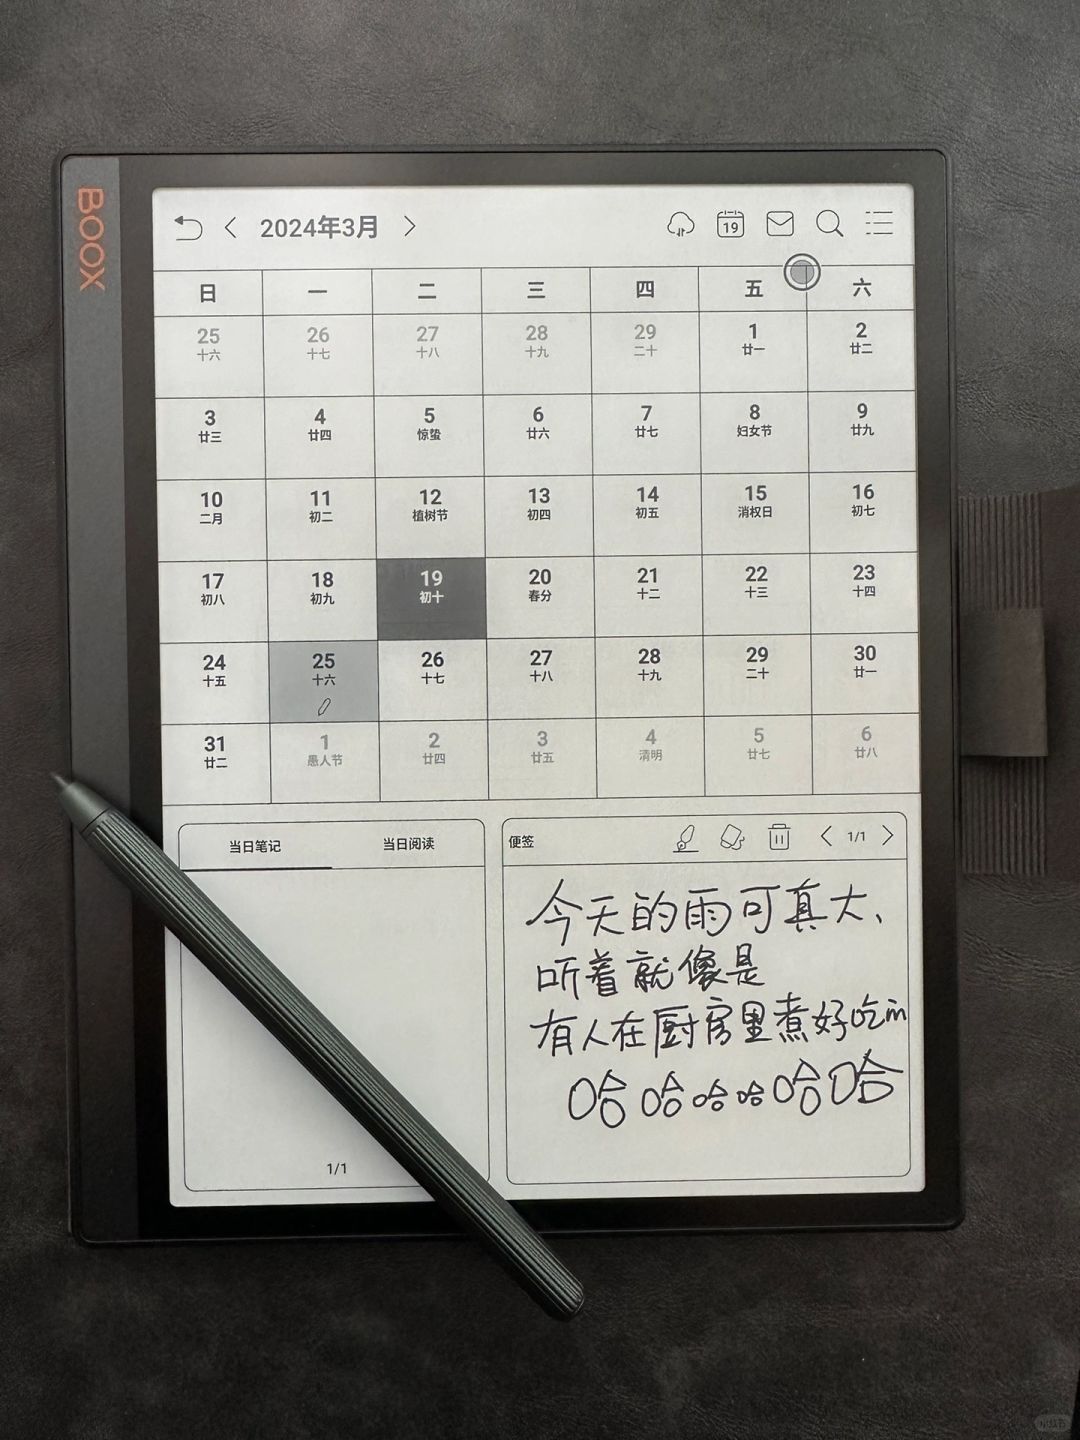 BOOX
2024年3月
19
日 一 二 三 四 五 六
25 26 27 28 29 1 2
十六 十七 十八 十九 二十 廿一 廿二
3 4 5 6 7 8 9
廿三 廿四 惊蛰 廿六 廿七 妇女节 廿九
10 11 12 13 14 15 16
二月 初二 植树节 初四 初五 消权日 初七
17 18 19 20 21 22 23
初八 初九 初十 春分 十二 十三 十四
24 25 26 27 28 29 30
十五 十六 十七 十八 十九 二十 廿一
31 1 2 3 4 5 6
廿二 愚人节 廿四 廿五 清明 廿七 廿八
当日笔记 当日阅读
1/1
便签 1/1
今天的雨可真大、
听着就像是
有人在厨房里煮好吃
哈哈哈哈哈哈
小红书